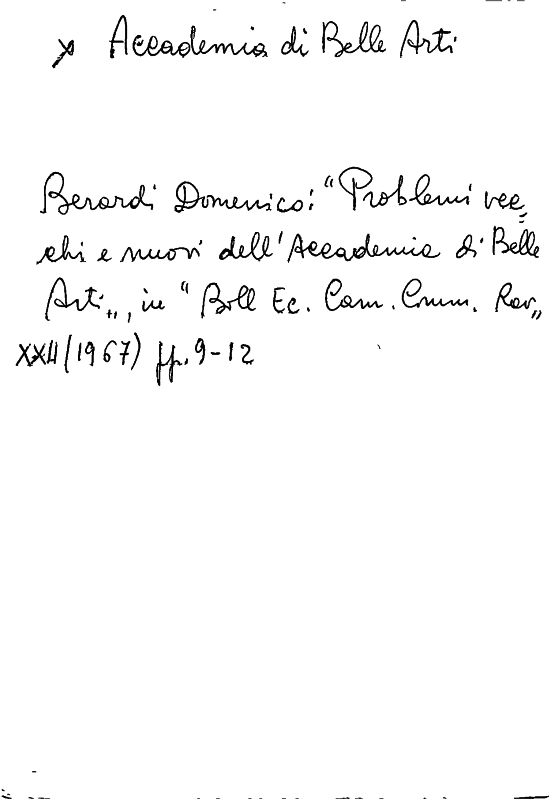 x Accademia di Belle Arti
Berardi Domenico: "Problemi vec=
chi e nuovi dell'Accademia di Belle
Arti„, in "Boll Ec. Cam. Comm. Rav„
XXII (1967) pp. 9-12